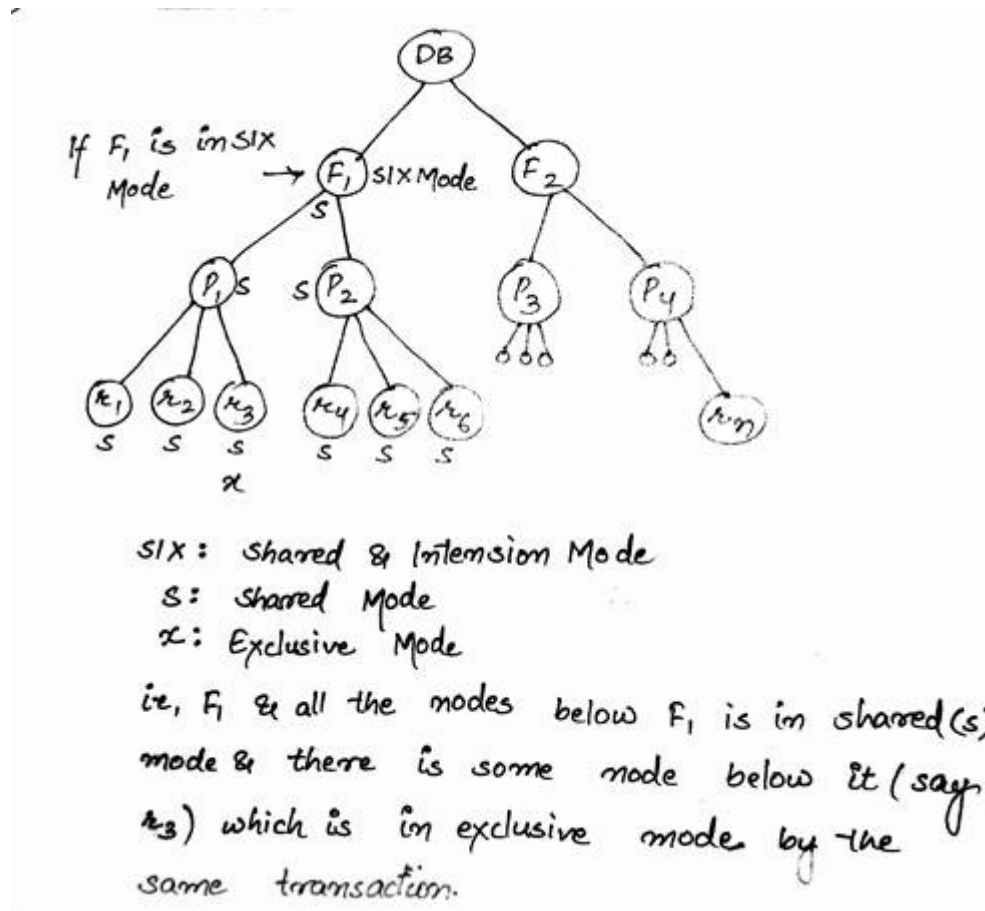 DB
If F₁ is in SIX
Mode
F₁ SIX Mode
F₂
S
P₁ S
S P₂
P₃
P₄
r₁ r₂ r₃ r₄ r₅ r₆ rₙ
S S S S S S
x
SIX: Shared & Intension Mode
S: Shared Mode
x: Exclusive Mode
ie, F₁ & all the nodes below F₁ is in shared(s)
mode & there is some node below it (say
r₃) which is in exclusive mode by the
same transaction.